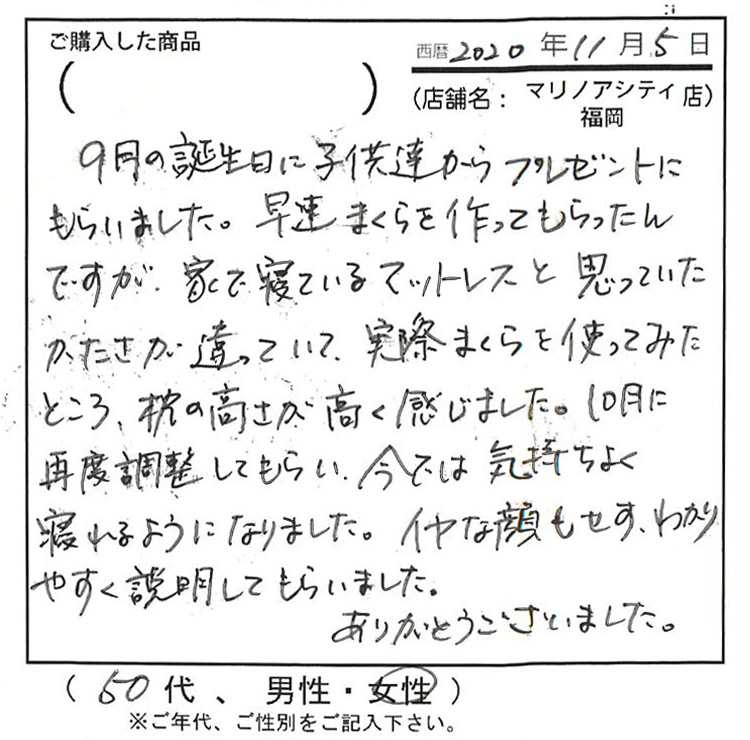 ご購入した商品
(　　　)
西暦2020年11月5日
(店舗名： マリノアシティ福岡 店)
9月の誕生日に子供達からプレゼントに
もらいました。早速まくらを作ってもらったん
ですが、家で寝ているマットレスと思っていた
かたさが違っていて、実際まくらを使ってみた
ところ、枕の高さが高く感じました。10月に
再度調整してもらい、今では気持ちよく
寝れるようになりました。イヤな顔もせず、わかり
やすく説明してもらいました。
ありがとうございました。
(50代、男性・女性)
※ご年代、ご性別をご記入下さい。